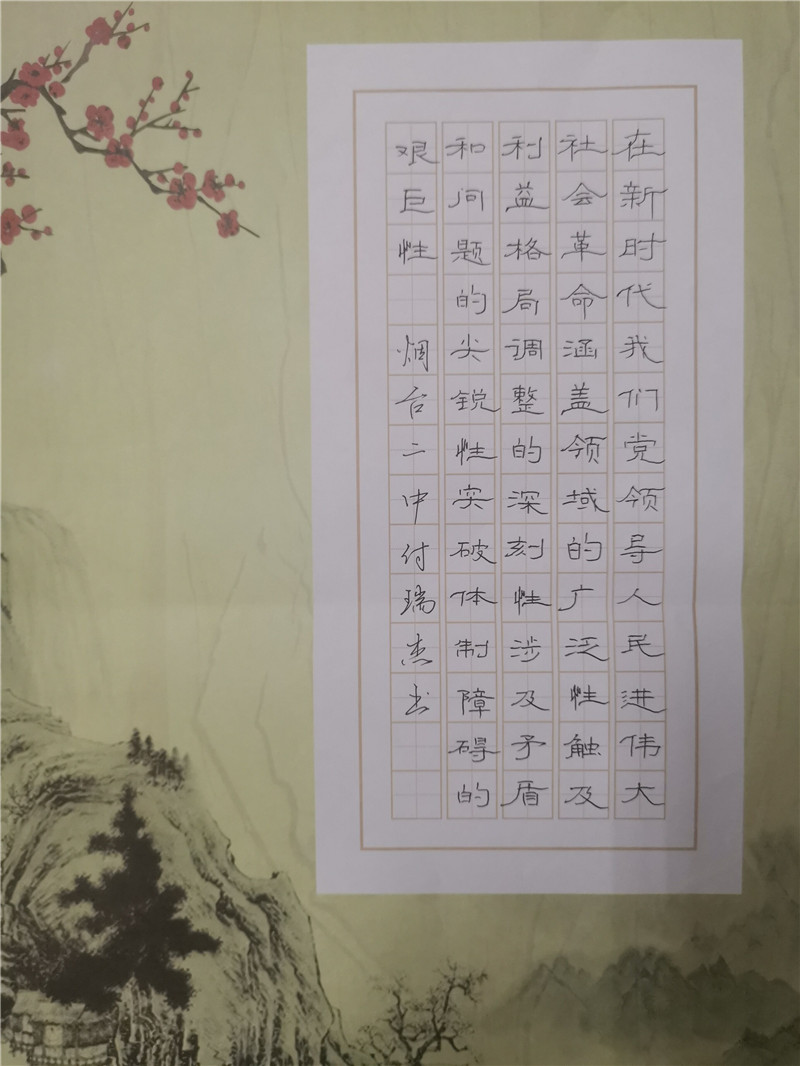 在新时代我们党领导人民进伟大
社会革命涵盖领域的广泛性触及
利益格局调整的深刻性涉及矛盾
和问题的尖锐性突破体制障碍的
艰巨性 烟台二中付瑞杰书